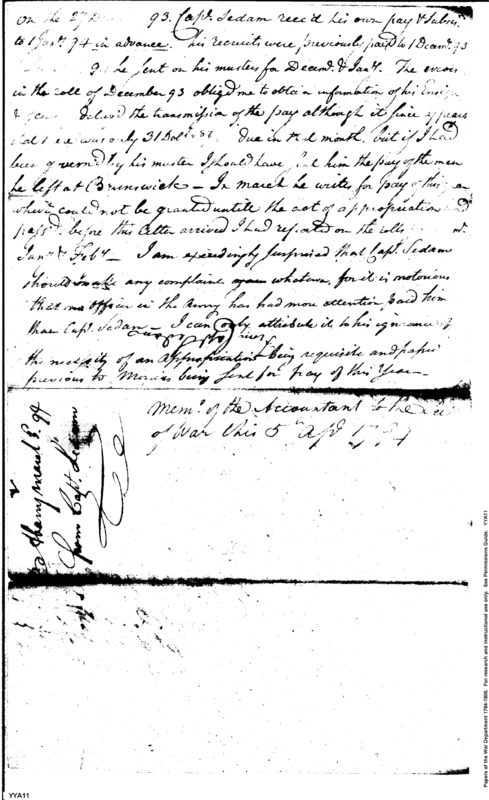 on the 27 Dec 93. Capt. Sedam recc'd his own pay & Subsis
to 1 Jany. 94 in advance. his recruits were previously paid to 1 Decemr. 93
he sent on his musters for Decemr. & Jany. The errors
in the roll of December 93 obliged me to obtain information of his Ensign
delay'd the transmission of the pay although it since appears
that there was only 31 Dols. due in that month, but if I had
been governed by his muster I should have him the pay of the men
he left at Brunswick — In march he writes for pay of this year
which could not be granted until the act of appropriation
pass'd. before this letter arrived I had reported on the rolls
Jany. & Feby. — I am exceedingly surprised that Capt. Sedam
should make any complaint whatever, for it is notorious
that no officer in the Army has had more attention paid him
than Capt. Sedam — I can only attribute it to his ignorance of
the necessity of an appropriation being requisite and
previous to Monies being sent for pay of this Year —
Memo. of the Accountant to the
of War this 5th Apl. 1794
march 3. 94
from Capt. Sedam
YYA11
Papers of the War Department 1784-1800. For research and instructional use only. See Permissions Guide. YYA11